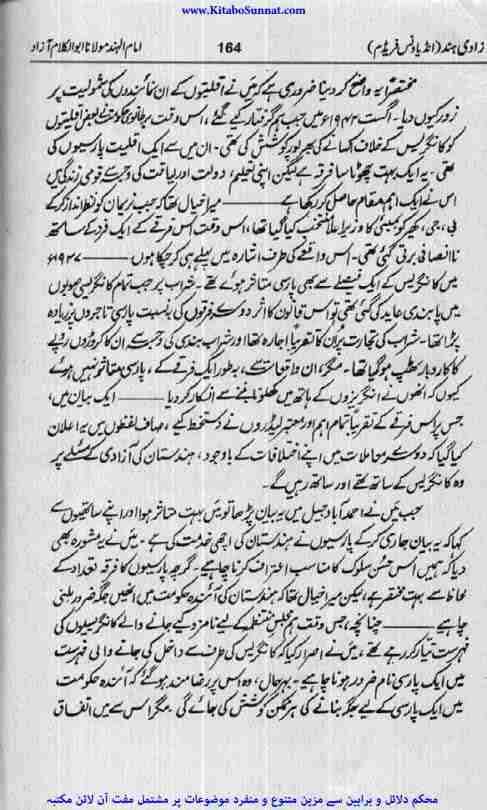 www.KitaboSunnat.com
آزادی ہند (انڈیا ونس فریڈم) 164 امام الہند مولانا ابوالکلام آزاد
مختصراً یہ واضح کر دینا ضروری ہے کہ میں نے اقلیتوں کے ان نمائندوں کی شمولیت پر
زور کیوں دیا۔ اگست ۱۹۴۲ء میں جب ہم گرفتار کیے گئے، اس وقت برطانوی حکومت نے بعض اقلیتوں
کو کانگریس کے خلاف اکسانے کی بھرپور کوشش کی تھی۔ ان میں سے ایک اقلیت پارسیوں کی
تھی۔ یہ ایک بہت چھوٹا سا فرقہ ہے لیکن اپنی تعلیم، دولت اور لیاقت کی وجہ سے قومی زندگی میں
اس نے ایک اہم مقام حاصل کر رکھا ہے ——— میرا خیال تھا کہ جب نریمان کو نظر انداز کر کے
بی، جی، کھیر کو بمبئی کا وزیر اعلا منتخب کیا گیا تھا، اس وقت اس فرقے کے ایک فرد کے ساتھ
ناانصافی برتی گئی تھی۔ اس واقعے کی طرف اشارہ میں پہلے ہی کر چکا ہوں ——— ۱۹۳۷ء
میں کانگریس کے ایک فیصلے سے بھی پارسی متاثر ہوئے تھے۔ شراب پر جب تمام کانگریسی صوبوں
میں پابندی عاید کی گئی تھی تو اس قانون کا اثر دوسرے فرقوں کی بہ نسبت پارسی تاجروں پر زیادہ
پڑا تھا۔ شراب کی تجارت پر ان کا تقریباً اجارہ تھا اور شراب بندی کی وجہ سے ان کا کروڑوں روپے
کا کاروبار ٹھپ ہو گیا تھا۔ مگر، ان واقعات سے، بہ طور ایک فرقے کے، پارسی متاثر نہیں ہوئے
کیوں کہ انھوں نے انگریزوں کے ہاتھ میں کھلونا بننے سے انکار کر دیا ——— ایک بیان میں،
جس پر اس فرقے کے تقریباً تمام اہم اور معتبر لیڈروں نے دستخط کیے، صاف لفظوں میں یہ اعلان
کیا گیا کہ دوسرے معاملات میں اپنے اختلافات کے باوجود، ہندستان کی آزادی کے مسئلے پر
وہ کانگریس کے ساتھ تھے اور ساتھ رہیں گے۔
جب میں نے احمد آباد جیل میں یہ بیان پڑھا تو میں بہت متاثر ہوا اور اپنے ساتھیوں سے
کہا کہ یہ بیان جاری کر کے پارسیوں نے ہندستان کی اچھی خدمت کی ہے۔ میں نے یہ مشورہ بھی
دیا کہ ہمیں اس حسن سلوک کا مناسب اعتراف کرنا چاہیے۔ گرچہ پارسیوں کا فرقہ تعداد کے
لحاظ سے بہت مختصر ہے، لیکن میرا خیال تھا کہ ہندستان کی آئندہ حکومت میں انھیں جگہ ضرور ملنی
چاہیے ——— چنانچہ، جس وقت ہم مجلس منتظمہ کے لیے نامزد کیے جانے والے کانگریسیوں کی
فہرست تیار کر رہے تھے، میں نے اصرار کیا کہ کانگریس کی طرف سے داخل کی جانے والی فہرست
میں ایک پارسی نام ضرور ہونا چاہیے۔ بہرحال، وہ اس پر رضامند ہو گئے کہ آئندہ حکومت
میں ایک پارسی کے لیے جگہ بنانے کی ہر ممکن کوشش کی جائے گی۔ مگر اس سے میں اتفاق
محکم دلائل و براہین سے مزین متنوع و منفرد موضوعات پر مشتمل مفت آن لائن مکتبہ